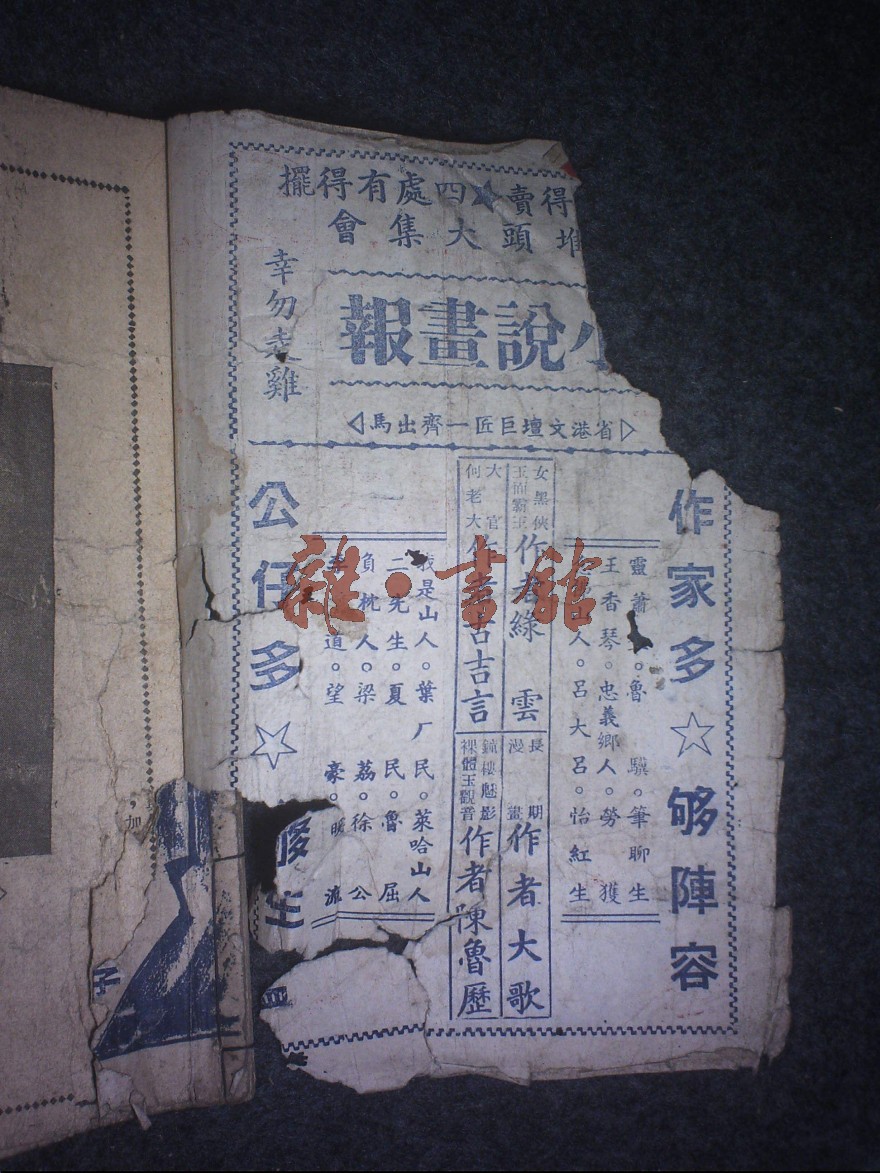 得賣★四處有得擺
堆頭大集會
小說畫報
幸勿走雞
▷省港文壇巨匠一齊出馬◁
作家多☆够陣容
靈蕭 魯驥。筆聊生
王香琴。忠義鄉人。勞獲
人。呂大呂。怡紅生
女黑俠
玉面霸王
作者綠雲
長期
漫畫
作者大歌
大官
何老大
作者吉吉言
鐘樓魅影
裸體玉觀音
作者陳魯歷
我是山人。葉厂民。萊哈山人
二先生。夏民。魯屈
負枕人。梁荔。徐公
道。望豪。 流
公仔多☆够生
加
雜·書館